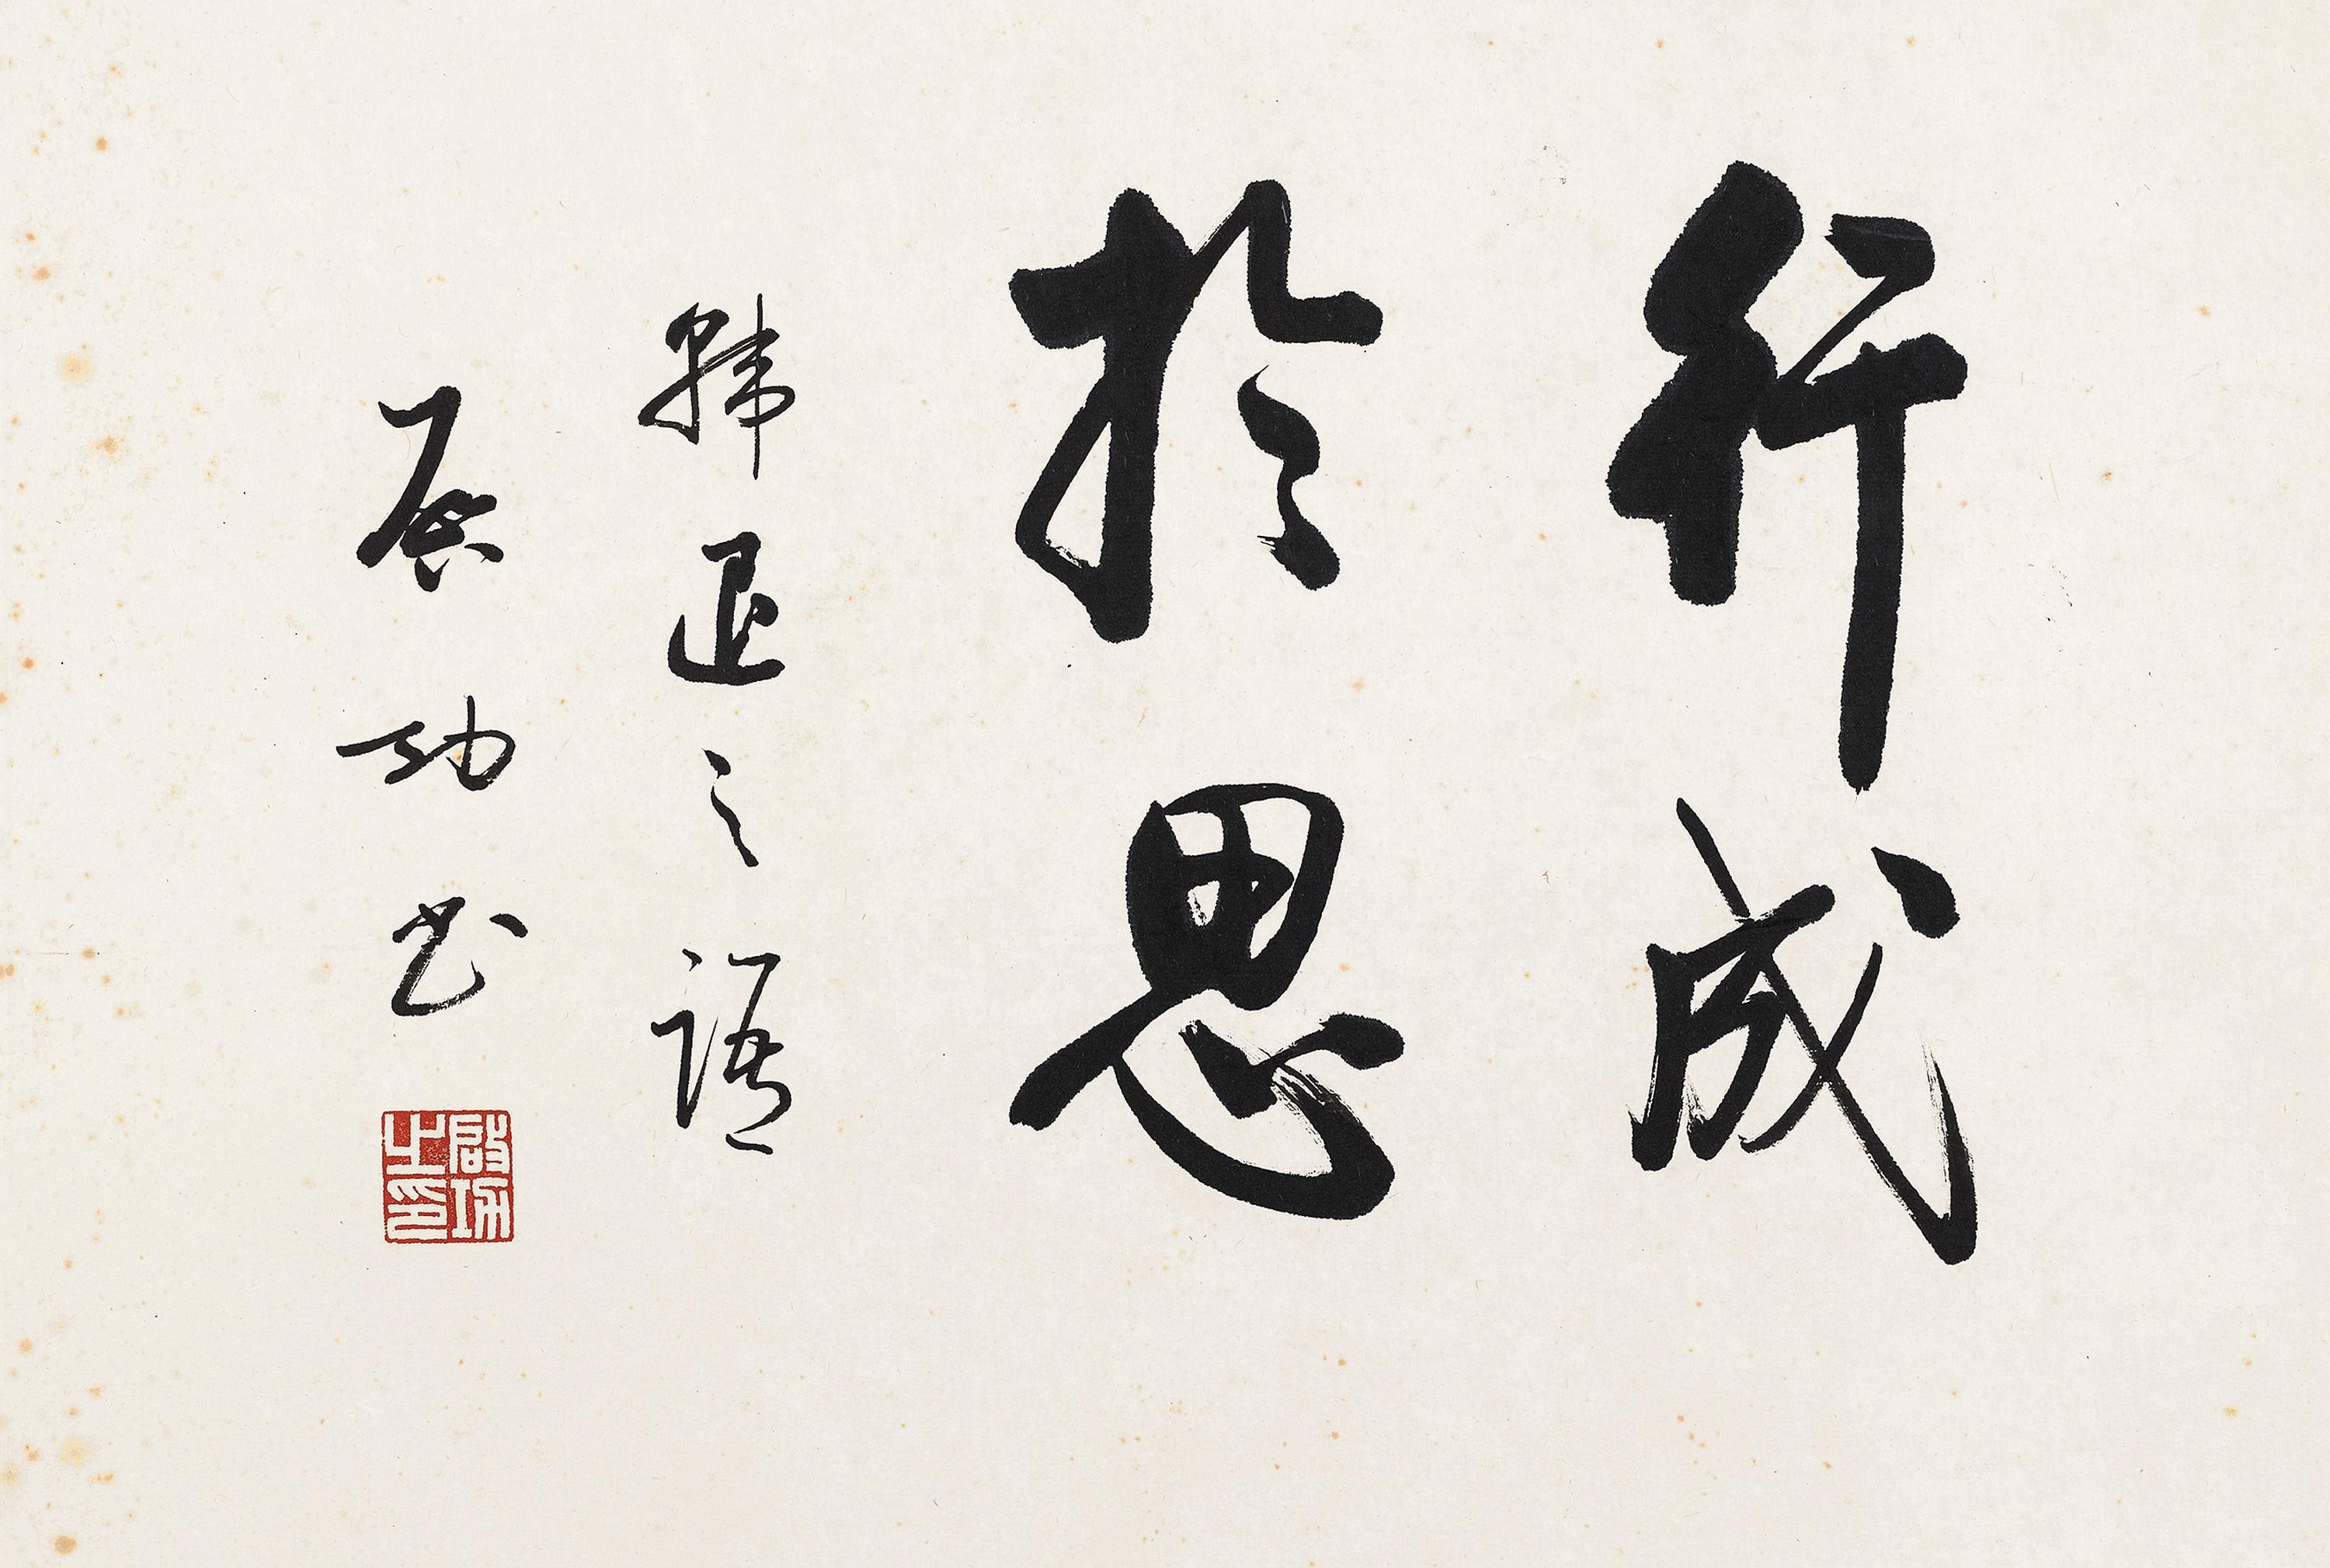 行成
於思
韓退之語
啟功書
啟功之印